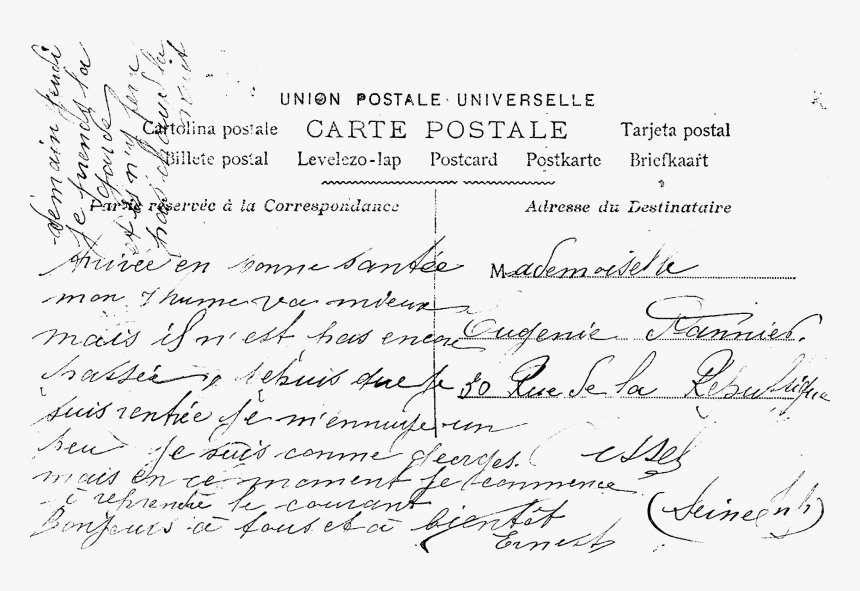 demain jeudi
je prends la
garde
et je n'y ferai
pas chaud la
nuit
UNION POSTALE UNIVERSELLE
Cartolina postale CARTE POSTALE Tarjeta postal
Billete postal Levelezo-lap Postcard Postkarte Briefkaart
Partie réservée à la Correspondance
Adresse du Destinataire
Arrivée en bonne santée
mon rhume va mieux
mais il n'est pas encore
passée, depuis que je
suis rentrée je m'ennuye un
peu je suis comme georges.
mais en ce moment je commence
à reprendre le courant
Bonjours à tous et à bientôt
Ernest
Mademoiselle
Eugenie
30 Rue de la République
(Seine Inf)